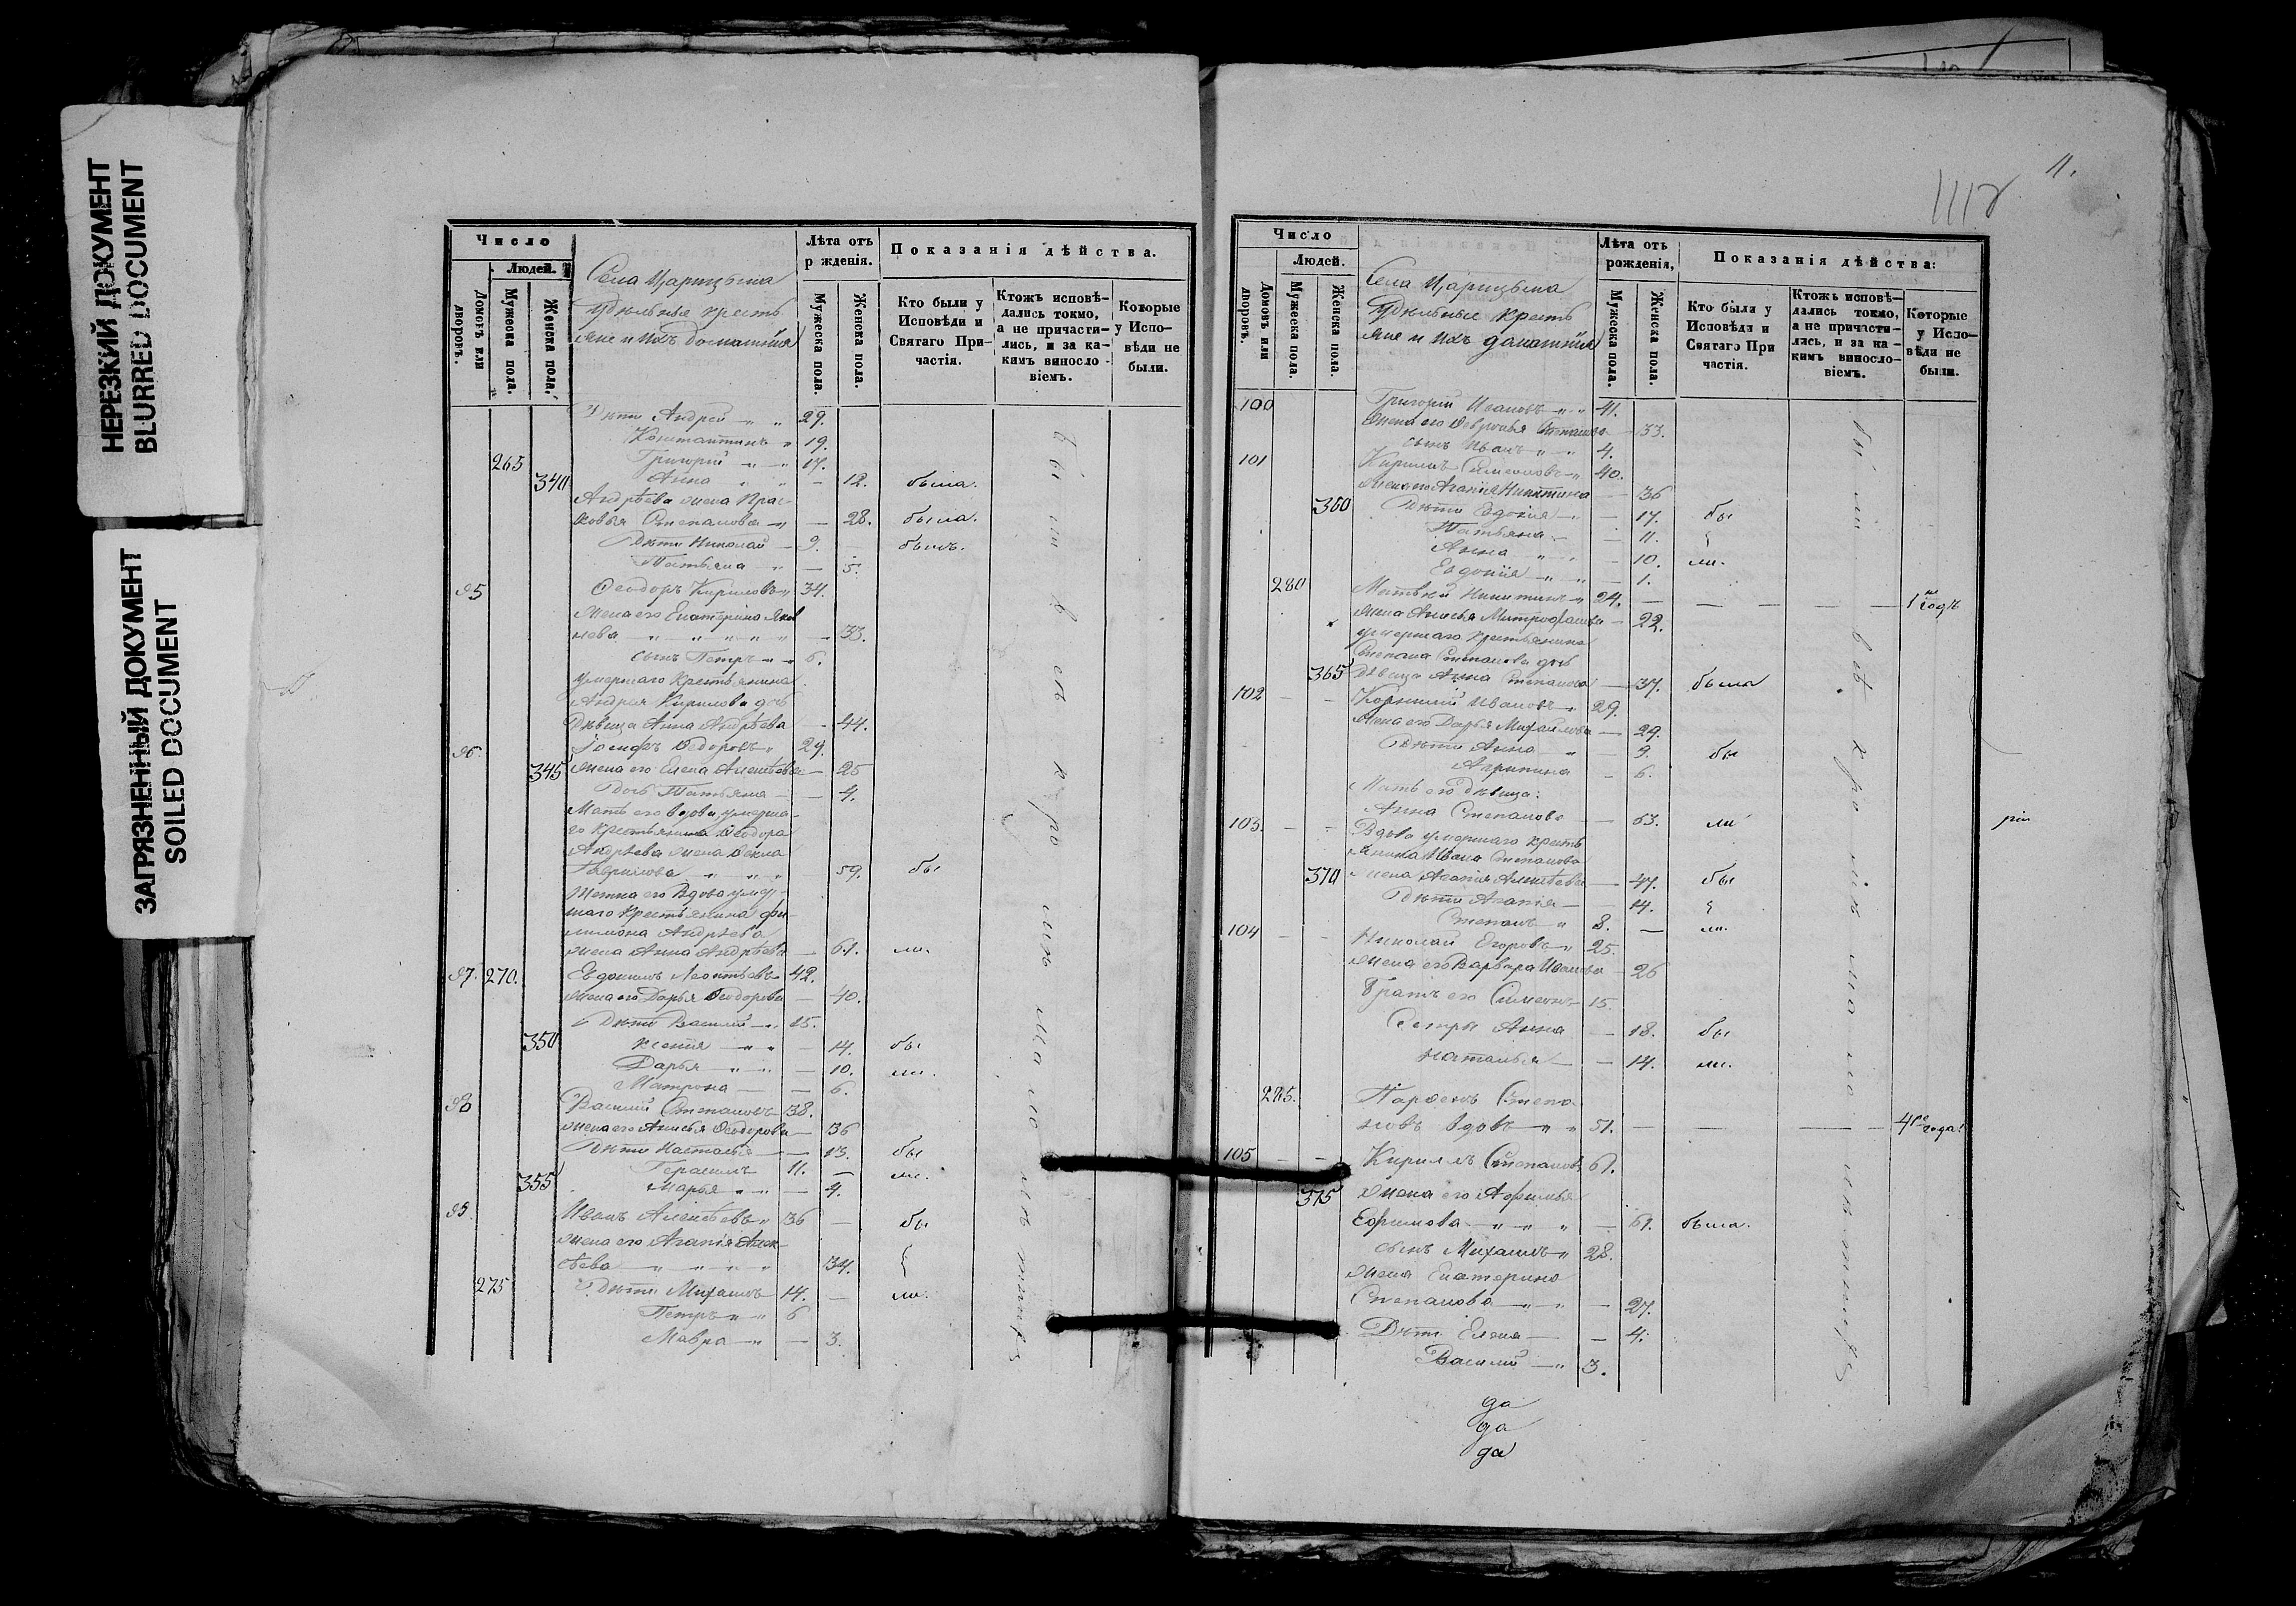 НЕРЕЗКИЙ ДОКУМЕНТ
BLURRED DOCUMENT
ЗАГРЯЗНЕННЫЙ ДОКУМЕНТ
SOILED DOCUMENT
Число
Людей.
Домовъ или дворовъ.
Мужеска пола.
Женска пола.
Села Царицына
Удѣльные кресть
яне и ихъ домашнія
Лѣта отъ
р жденія.
Мужеска пола.
Женска пола.
Показанія дѣйства.
Кто были у
Исповѣди и
Святаго При-
частія.
Ктожъ исповѣ-
дались токмо,
а не причасти-
лись, и за ка-
кимъ винослo-
віемъ.
Которые
у Испо-
вѣди не
были.
Дѣти Андрей 29.
Константинъ 19.
265 Григорій 17.
340 Анна — 12. была.
Андрѣева жена Прас-
ковья Степанова — 28. была.
Дѣти Николай — 9. былъ.
Татьяна — 5.
95 Ѳеодоръ Кириловъ 34.
жена его Екатерина Яков
лева — 33.
сынъ Петръ 6.
умершаго крестьянина
Андрея Кирилова дчь
Дѣвица Анна Андрѣева — 44.
96. Іосифъ Ѳедоровъ 29.
345 жена его Елена Алексѣева — 25
Дочь Татьяна — 4.
Мать его вдова умерша-
го крестьянина Ѳеодора
Андрѣева жена Ѳекла
Гаврилова 59. бы
Тетка его Вдова умер-
шаго крестьянина Фи-
лимона Андрѣева
жена Анна Андрѣева — 61. ли.
97. 270. Евдокимъ Леонтьевъ 42.
жена его Дарья Ѳеодорова — 40.
Дѣти Василій 15.
350 Ксенія — 14. бы
Дарья — 10. ли.
Матрона — 6.
98 Василій Степановъ 38.
жена его Анисья Ѳеодорова — 36
Дѣти Настасья — 13. бы
Герасимъ 11. — ли.
355 Марья — 4.
99. Иванъ Алексѣевъ 36 — бы
жена его Агапія Алек-
сѣева 34.
275 Дѣти Михаилъ 14. — ли.
Петръ 6
Мавра — 3.
11.
1112
Число
Людей.
Домовъ или дворовъ.
Мужеска пола.
Женска пола.
Села Царицына
Удѣльные кресть
яне и ихъ домашнія
Лѣта отъ
рожденія,
Мужеска пола.
Женска пола.
Показанія дѣйства:
Кто были у
Исповѣди и
Святаго При
частія.
Ктожъ исповѣ-
дались токмо,
а не причасти-
лись, и за ка-
кимъ винослo-
віемъ.
Которые
у Испо-
вѣди не
были.
100 Григорій Ивановъ 41.
жена его Ѳевронья Степанова — 33.
сынъ Иванъ 4.
101 Кирилъ Симеоновъ 40.
жена его Агапія Никитина — 36
360 Дѣти Евдокія — 17. бы
Татьяна — 11.
Анна — 10. ли.
Евдокія — 1.
280 Матвѣй Никитинъ 24. — — — — 1й годъ
жена Анисья Митрофанова — 22.
умершаго крестьянина
Степана Степанова дчь
365 Дѣвица Анна Степанова — 37. была
102 — — Корнилій Ивановъ 29.
жена его Дарья Михайлова — 29.
Дѣти Анна — 9. бы
Агрипина — 6.
Мать его Дѣвица:
Анна Степанова — 63. ли
103. — — Вдова умершаго кресть
янина Ивана Степанова
370 жена Агапія Алексѣева — 47. бы
Дѣти Агапія — 14.
Степанъ 8. — ли.
104 — — Николай Егоровъ 25.
жена его Варвара Иванова — 26
Братъ его Симеонъ 15
Сестры Анна — 18. бы
Наталья — 14. ли.
285. Парѳенъ Степа
новъ вдовъ 51. — — — — 4ре года.
105 — — Кирилъ Степановъ 61.
375 Жена его Афимья
Ефимова — 61. была.
сынъ Михаилъ 28.
жена Екатерина
Степанова — 27.
Дѣти Елена — 4.
Василій 3.
да
да
да